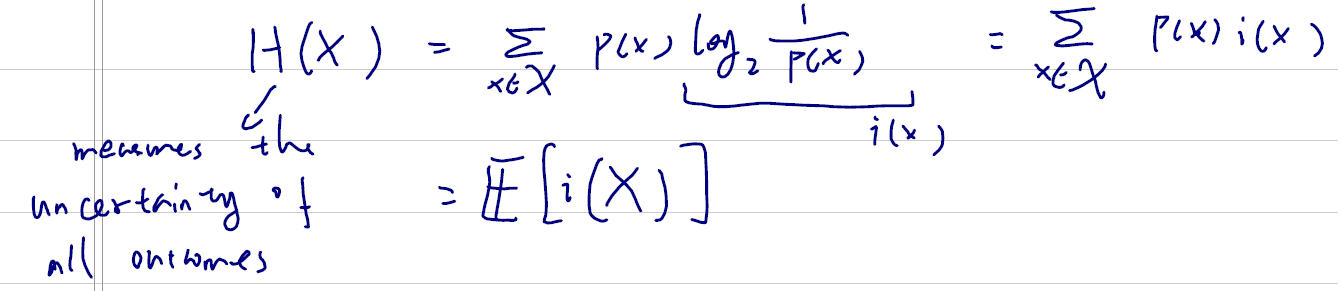 H(X) = Σ_{x∈𝒳} P(x) log₂ 1/P(x) = Σ_{x∈𝒳} P(x) i(x)
i(x)
measures the
uncertainty of
all outcomes
= 𝔼[i(X)]